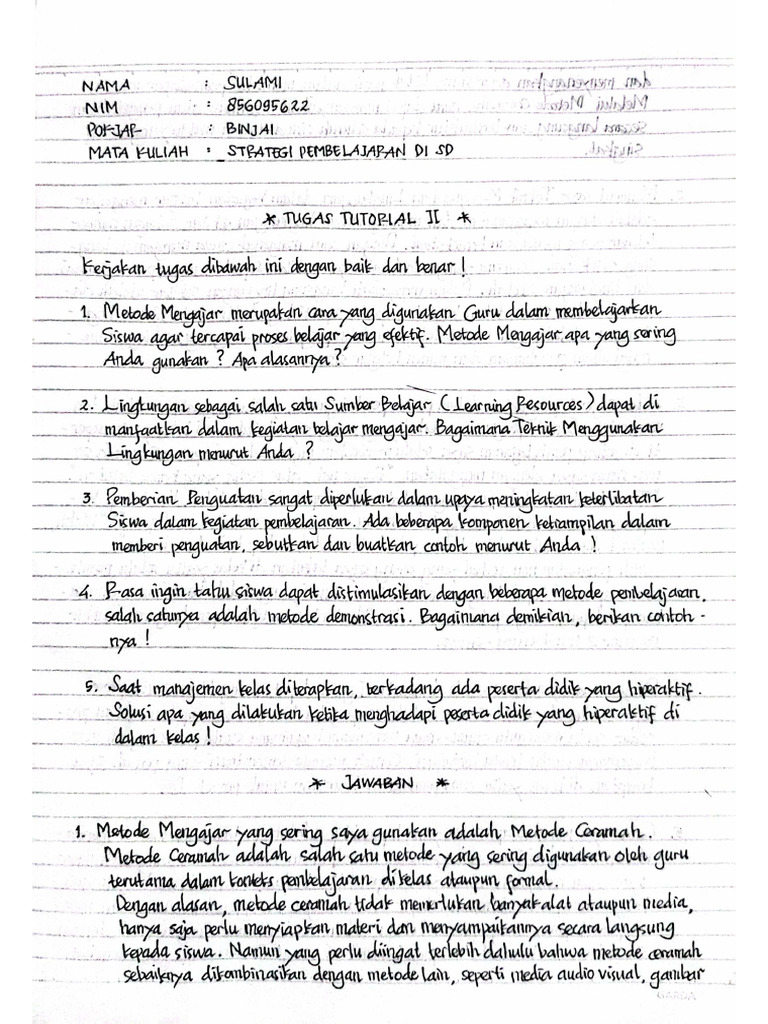 NAMA : SULAMI
NIM : 856095622
POKJAR : BINJAI
MATA KULIAH : STRATEGI PEMBELAJARAN DI SD
* TUGAS TUTORIAL II *
Kerjakan tugas dibawah ini dengan baik dan benar!
1. Metode Mengajar merupakan cara yang digunakan Guru dalam membelajarkan
Siswa agar tercapai proses belajar yang efektif. Metode Mengajar apa yang sering
Anda gunakan? Apa alasannya?
2. Lingkungan sebagai salah satu Sumber Belajar (Learning Resources) dapat di
manfaatkan dalam kegiatan belajar mengajar. Bagaimana Teknik Menggunakan
Lingkungan menurut Anda?
3. Pemberian Penguatan sangat diperlukan dalam upaya meningkatan keterlibatan
Siswa dalam kegiatan pembelajaran. Ada beberapa komponen ketrampilan dalam
memberi penguatan, sebutkan dan buatkan contoh menurut Anda!
4. Rasa ingin tahu siswa dapat distimulasikan dengan beberapa metode pembelajaran,
salah satunya adalah metode demonstrasi. Bagaimana demikian, berikan contoh-
nya!
5. Saat manajemen kelas diterapkan, terkadang ada peserta didik yang hiperaktif.
Solusi apa yang dilakukan ketika menghadapi peserta didik yang hiperaktif di
dalam kelas!
* JAWABAN *
1. Metode Mengajar yang sering saya gunakan adalah Metode Ceramah.
Metode Ceramah adalah salah satu metode yang sering digunakan oleh guru
terutama dalam konteks pembelajaran di kelas ataupun formal.
Dengan alasan, metode ceramah tidak memerlukan banyak alat ataupun media,
hanya saja perlu menyiapkan materi dan menyampaikannya secara langsung
kepada siswa. Namun yang perlu diingat terlebih dahulu bahwa metode ceramah
sebaiknya dikombinasikan dengan metode lain, seperti media audio visual, gambar